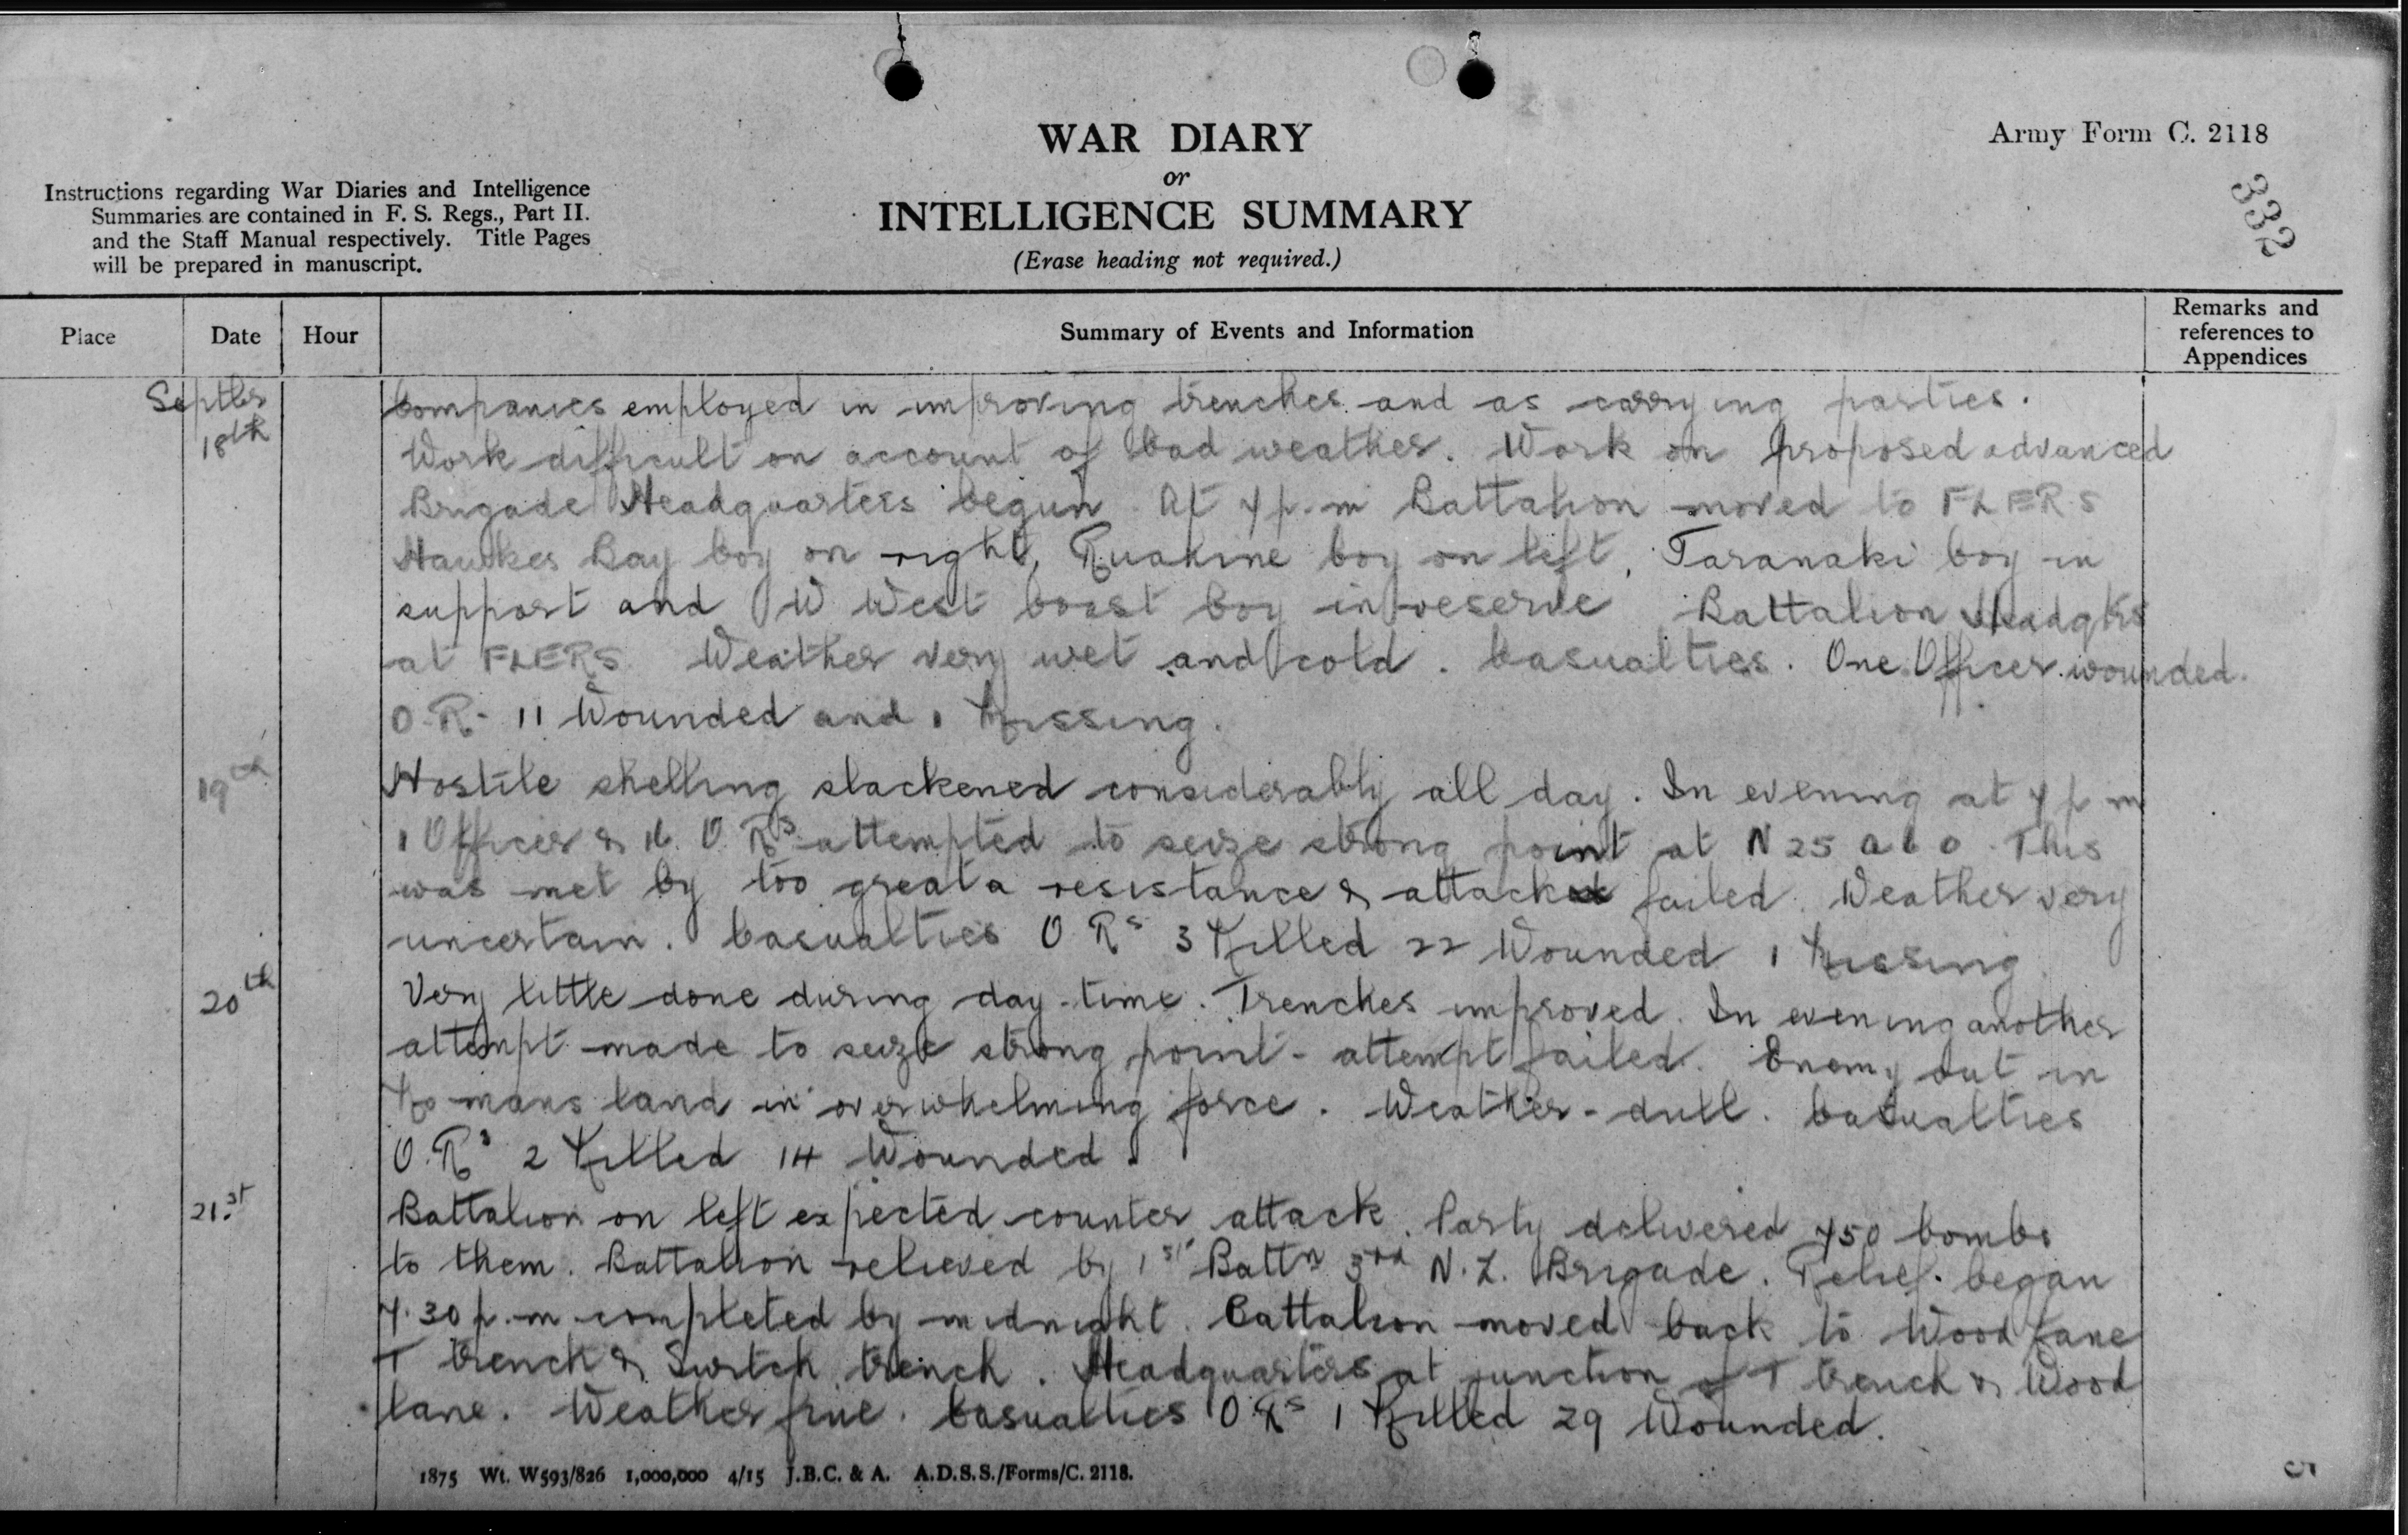 WAR DIARY
or
INTELLIGENCE SUMMARY
(Erase heading not required.)
Army Form C. 2118
332
Instructions regarding War Diaries and Intelligence
Summaries are contained in F. S. Regs., Part II.
and the Staff Manual respectively. Title Pages
will be prepared in manuscript.
Place
Date
Hour
Summary of Events and Information
Remarks and
references to
Appendices
Septbr
18th
Companies employed in improving trenches and as carrying parties.
Work difficult on account of bad weather. Work on proposed advanced
Brigade Headquarters begun. At 7 p.m Battalion moved to FLERS
Hawkes Bay Coy on right, Ruahine Coy on left, Taranaki Coy in
support and W West Coast Coy in reserve Battalion Headqrs
at FLERS Weather very wet and cold. Casualties. One Officer wounded.
O.R. 11 Wounded and 1 Missing.
19th
Hostile shelling slackened considerably all day. In evening at 7 p m
1 Officer & 16 O. Rs attempted to seize strong point at N 25 a 6 0 This
was met by too great a resistance & attack failed. Weather very
uncertain. Casualties O Rs 3 Killed 22 Wounded 1 Missing
20th
Very little done during day-time. Trenches improved. In evening another
attempt made to seize strong point - attempt failed. Enemy out in
No mans land in overwhelming force. Weather - dull. Casualties
O.Rs 2 Killed 14 Wounded.
21.st
Battalion on left expected counter attack. Party delivered 750 bombs
to them. Battalion relieved by 1st Battn 3rd N.Z. Brigade. Relief began
7.30 p.m completed by midnight. Battalion moved back to Wood Lane
T trench & Switch trench. Headquarters at junction of T trench & Wood
Lane. Weather fine. Casualties O Rs 1 Killed 29 Wounded.
1875 Wt. W593/826 1,000,000 4/15 J.B.C. & A. A.D.S.S./Forms/C. 2118.